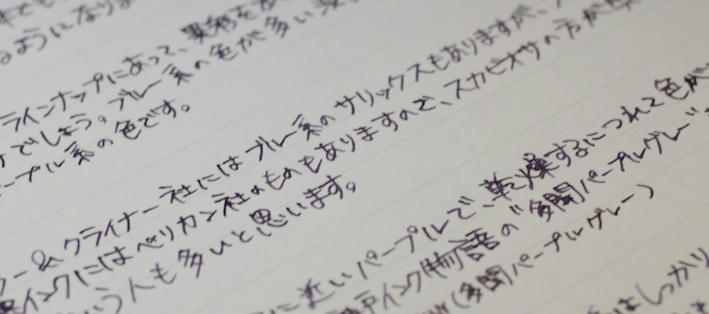 るようになりま
ラインナップにあって、異彩を放
でしょう。ブルー系の色が多い
ープル系の色です。
ー＆クライナー社にはブルー系のサリックスもありますが、
インクにはペリカン社のものもありますので、スカビオサの方が
いう人も多いと思います。
に近いパープルで、乾燥するにつれて色が
戸インク物語の"多聞パープルグレー"
(多聞パープルグレー)
はしっかり